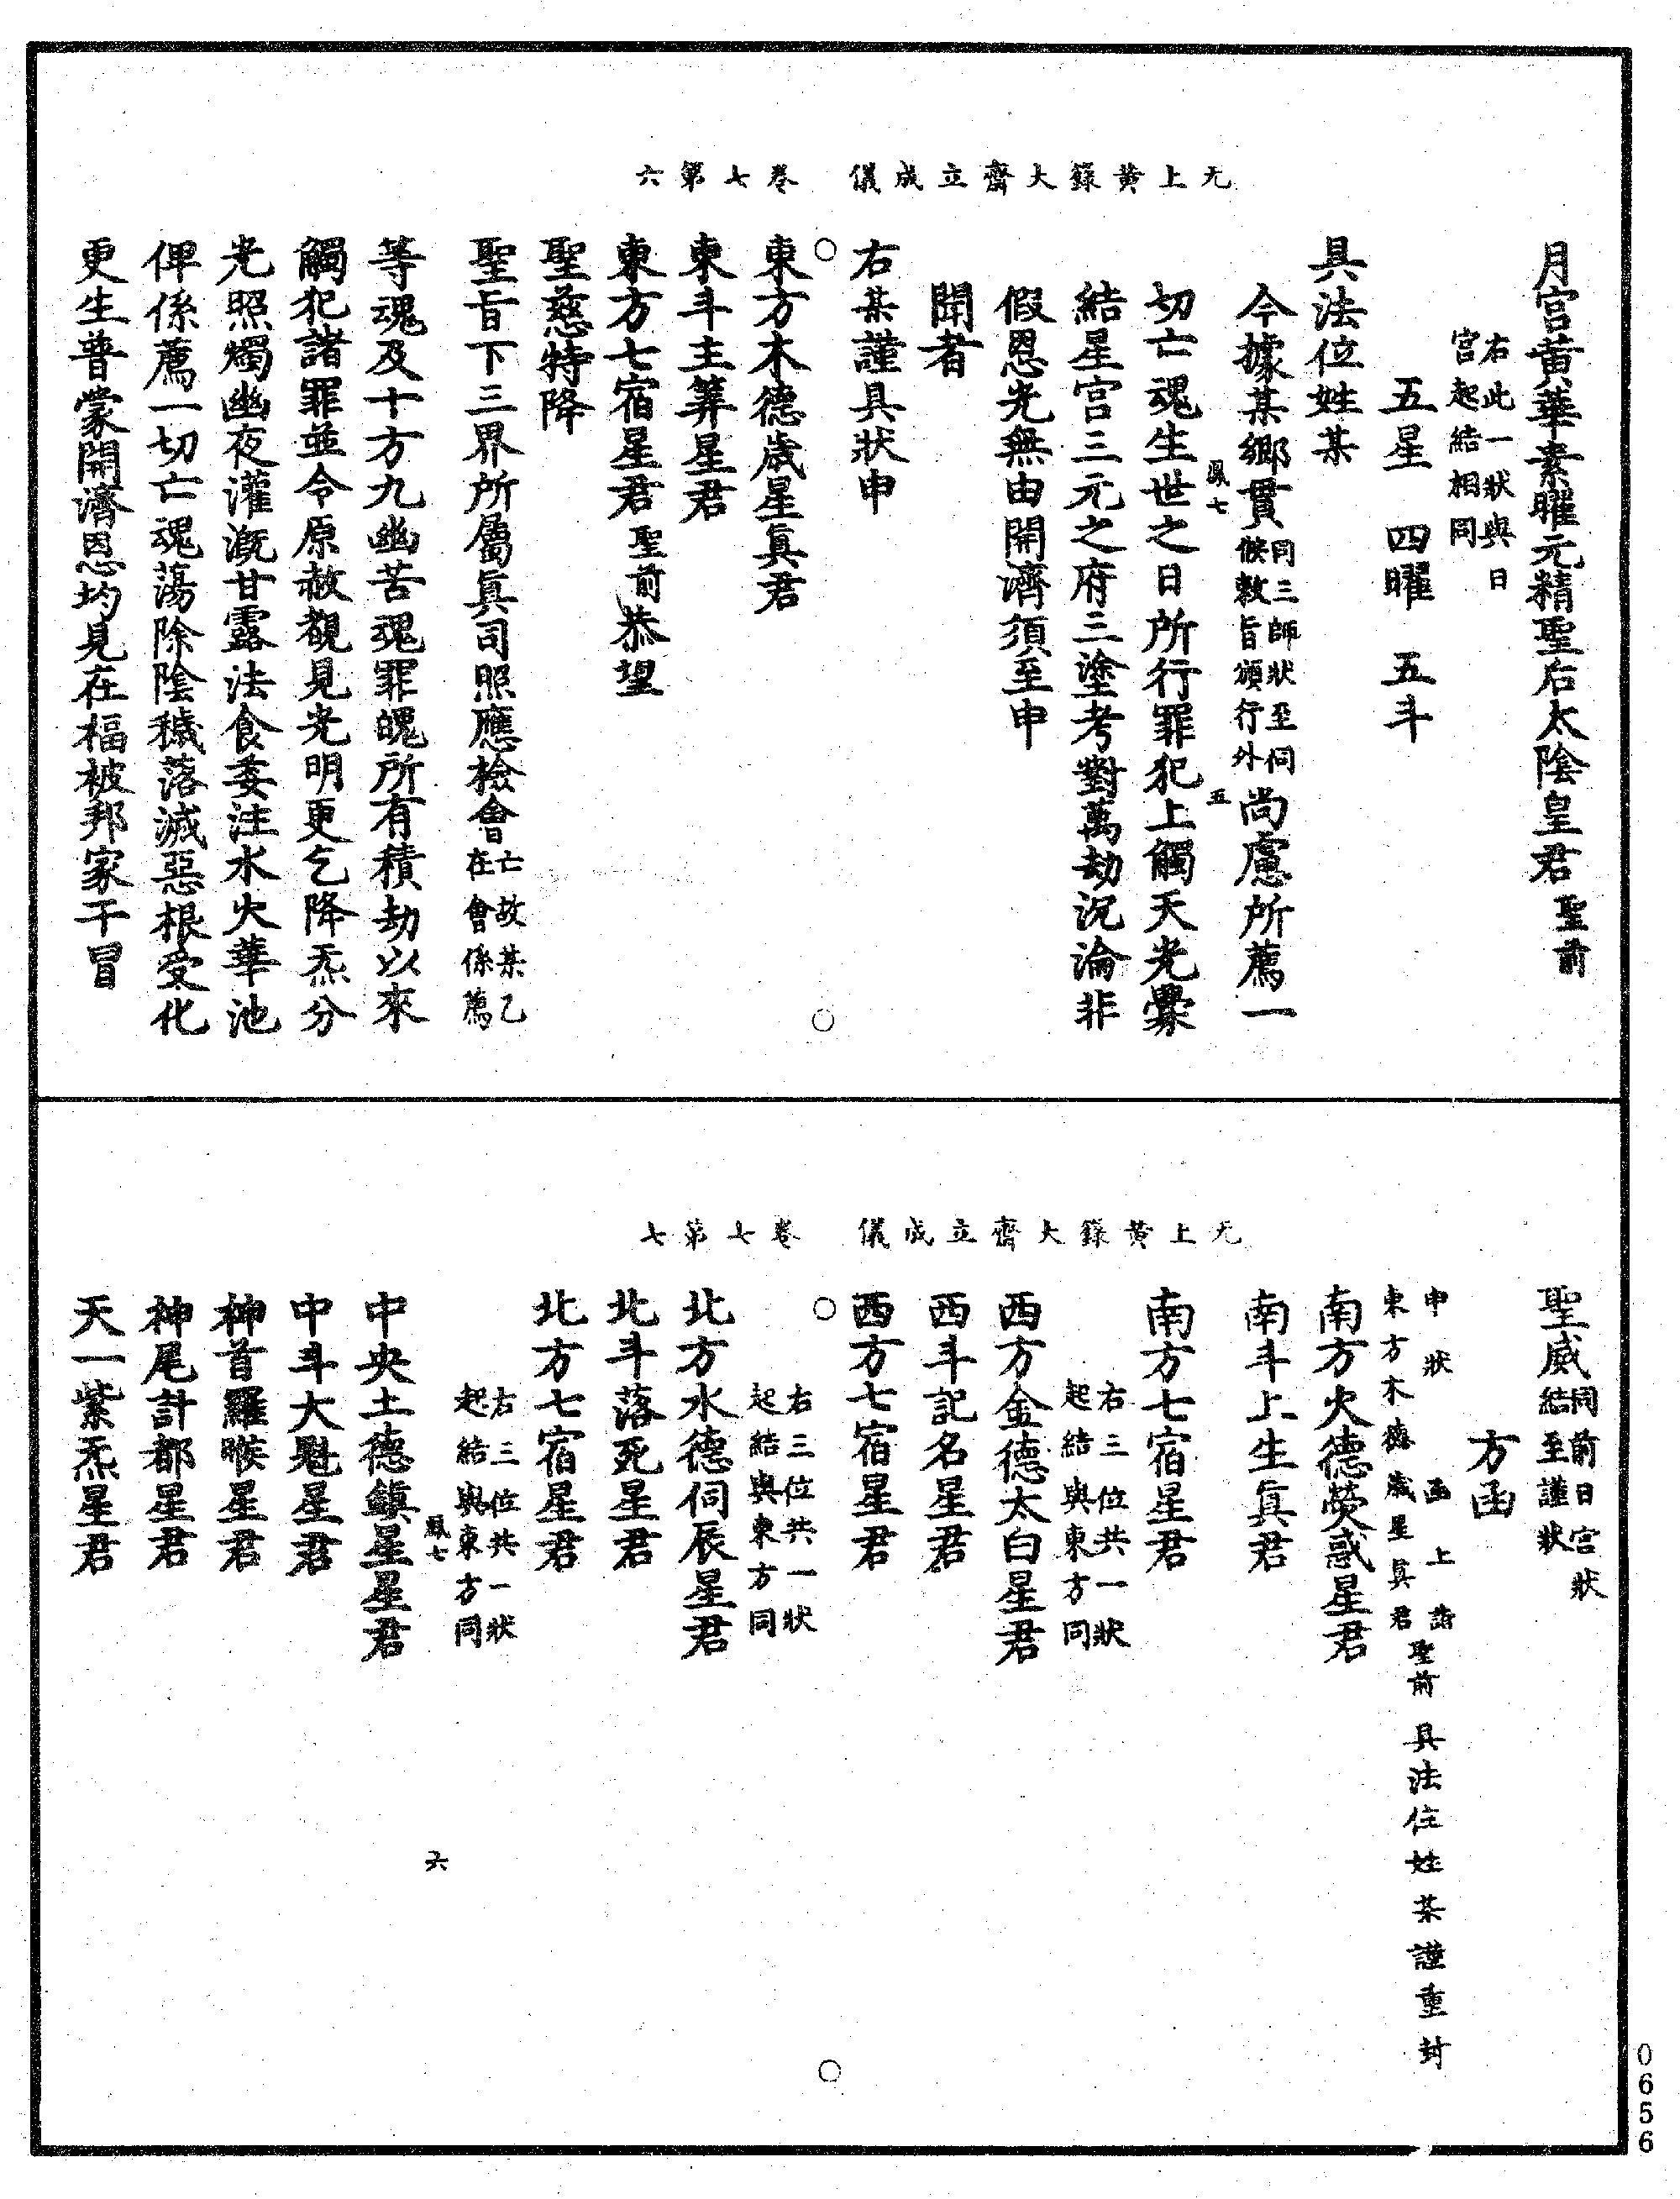 无上黃籙大齋立成儀　卷七第六
月宮黃華素曜元精聖后太陰皇君聖前
右此一狀與日
宮起結相同
五星　四曜　五斗
具法位姓某
今據某鄉貫同三師狀至伺候敕旨頒行外尚慮所薦一
鳳七　五
切亡魂生世之日所行罪犯上觸天光釁
結星宮三元之府三塗考對萬劫沉淪非
假恩光無由開濟須至申
聞者
右某謹具狀申
東方木德歲星眞君
東斗主筭星君
東方七宿星君聖前恭望
聖慈特降
聖旨下三界所屬眞司照應檢會亡故某乙在會係薦
等魂及十方九幽苦魂罪魄所有積劫以來
觸犯諸罪並令原赦覩見光明更乞降炁分
光照燭幽夜灌溉甘露法食委注水火華池
俾係薦一切亡魂蕩除陰穢落滅惡根受化
更生普蒙開濟恩均見在福被邦家干冒
无上黃籙大齋立成儀　卷七第七
聖威同前日宮狀結至謹狀
方函
申狀　函上　諸
東方木德歲星眞君聖前　具法位姓某謹重封
南方火德熒惑星君
南斗上生眞君
南方七宿星君
右三位共一狀
起結與東方同
西方金德太白星君
西斗記名星君
西方七宿星君
右三位共一狀
起結與東方同
北方水德伺辰星君
北斗落死星君
北方七宿星君
右三位共一狀
起結與東方同
鳳七　六
中央土德鎮星星君
中斗大魁星君
神首羅睺星君
神尾計都星君
天一紫炁星君
0656